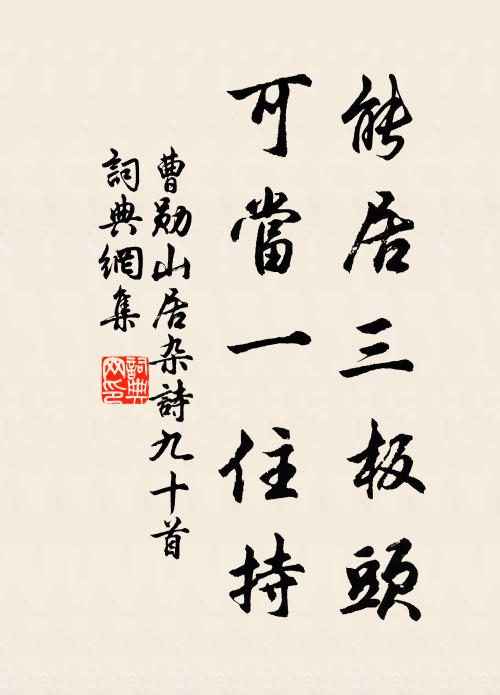 能居三板頭
可當一住持
曹勛山居杂詩九十首
詞典網集
詞典网印